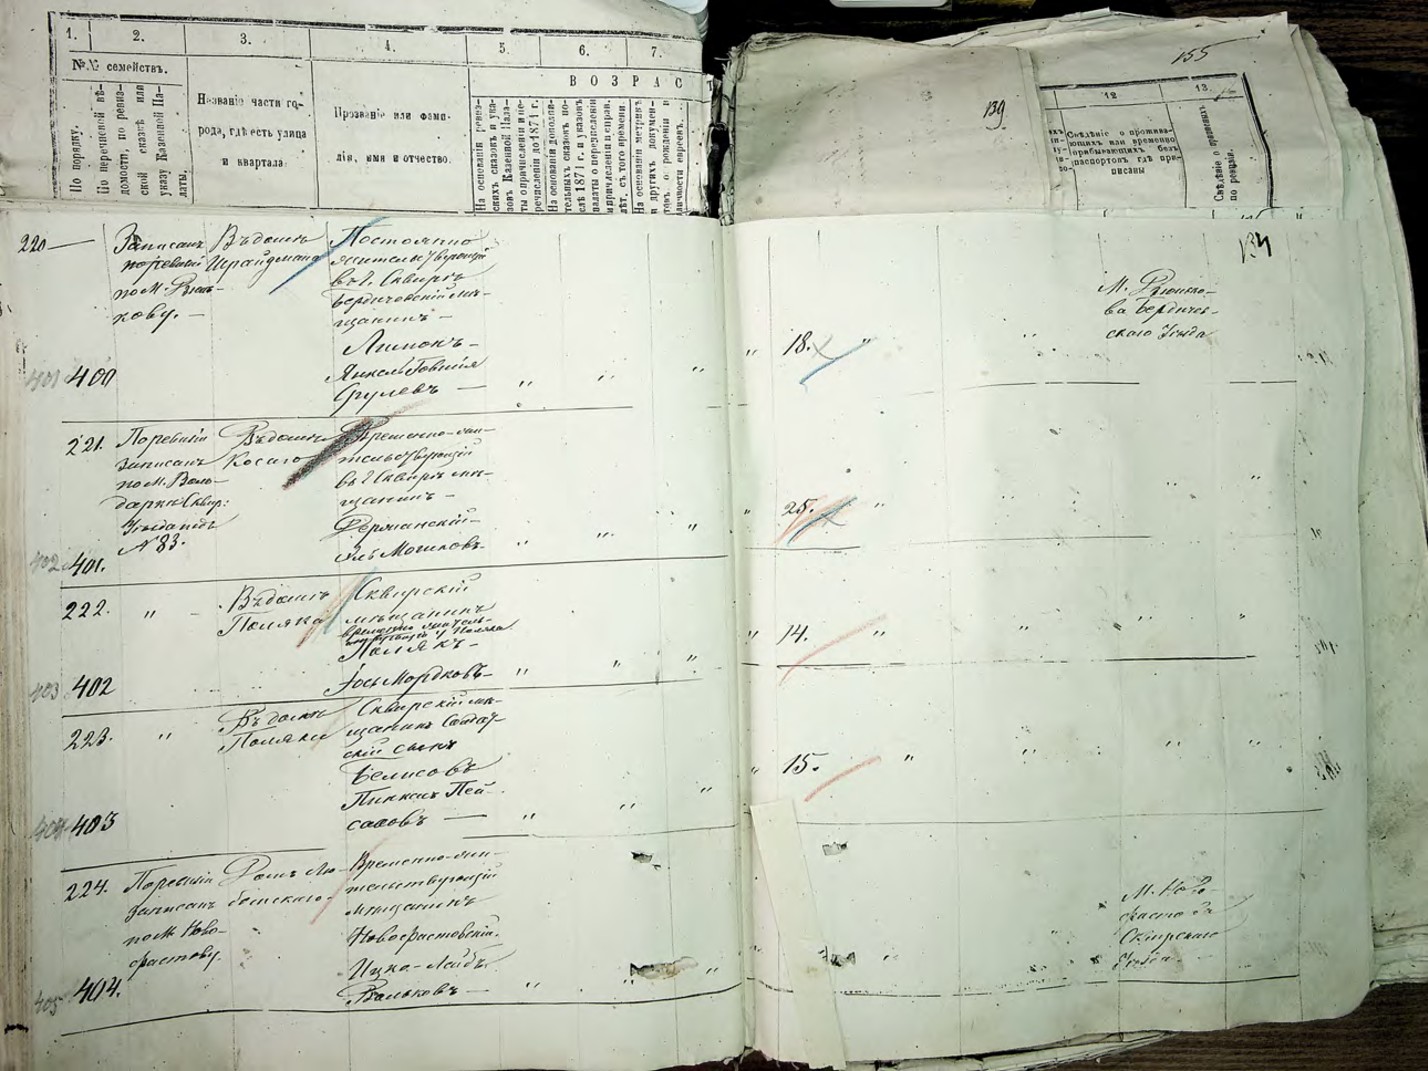 1. 2. 3. 4. 5. 6. 7.
№№ семействъ.
По порядку.
По перечневой вѣ-
домости, по ревиз-
ской сказкѣ или
указу Казенной Па-
латы.
Названіе части го-
рода, гдѣ есть улица
и квартала
Прозваніе или фами-
лія, имя и отчество.
ВОЗРАСТ
На основаніи ревиз-
скихъ сказокъ и ука-
зовъ Казенной Пала-
ты о причисленіи и пе-
речисленіи до 1871 г.
На основаніи дополни-
тельныхъ сказокъ по-
слѣ 1871 г. и указовъ
палаты о перечисленіи
и причисленіи и справ.
лѣт. съ того времени.
На основаніи метрикъ
и другихъ докумен-
товъ о рожденіи и
личности евреевъ.
139
155
12
13.
Свѣдѣніе о прожива-
ющихъ или временно
прибывающихъ безъ
паспортовъ гдѣ при-
писаны
по ревизіи.
134
220
Записанъ
по ревизіи
по М. Рыж-
кову.
Въ домѣ
Шрайдмана
Постоянно
жительствующій
въ г. Сквирѣ
Бердичевскій мѣ-
щанинъ
Лимонъ
Янкель
18.
М.
ва Бердичев-
скаго Уѣзда
401 400
221.
По ревизіи
записанъ
по М. Воло-
даркѣ Сквир:
Уѣзда подъ
№ 83.
Въ домѣ
Косаго
Временно-жи-
тельствующій
въ г Сквирѣ мѣ-
щанинъ
Мошковъ
25.
402 401.
222.
Въ домѣ
Поляка
Сквирскій
мѣщанинъ
временно житель-
ствующій у Поляка
Полякъ
Іось Мордковъ
14.
403 402
223.
Въ домѣ
Поляка
Сквирскій мѣ-
щанинъ Солдат-
скій сынъ
Белисовъ
Пинкасъ Пей-
саховъ
15.
404 403
224.
По ревизіи
записанъ
по М. Ново-
фастову.
Домъ Лю-
бомскаго
Временно-жи-
тельствующій
мѣщанинъ
Новофастовскій.
Ицко-Лейбъ
Вольковъ
М. Ново-
фастова
Сквирскаго
Уѣзда.
405 404.